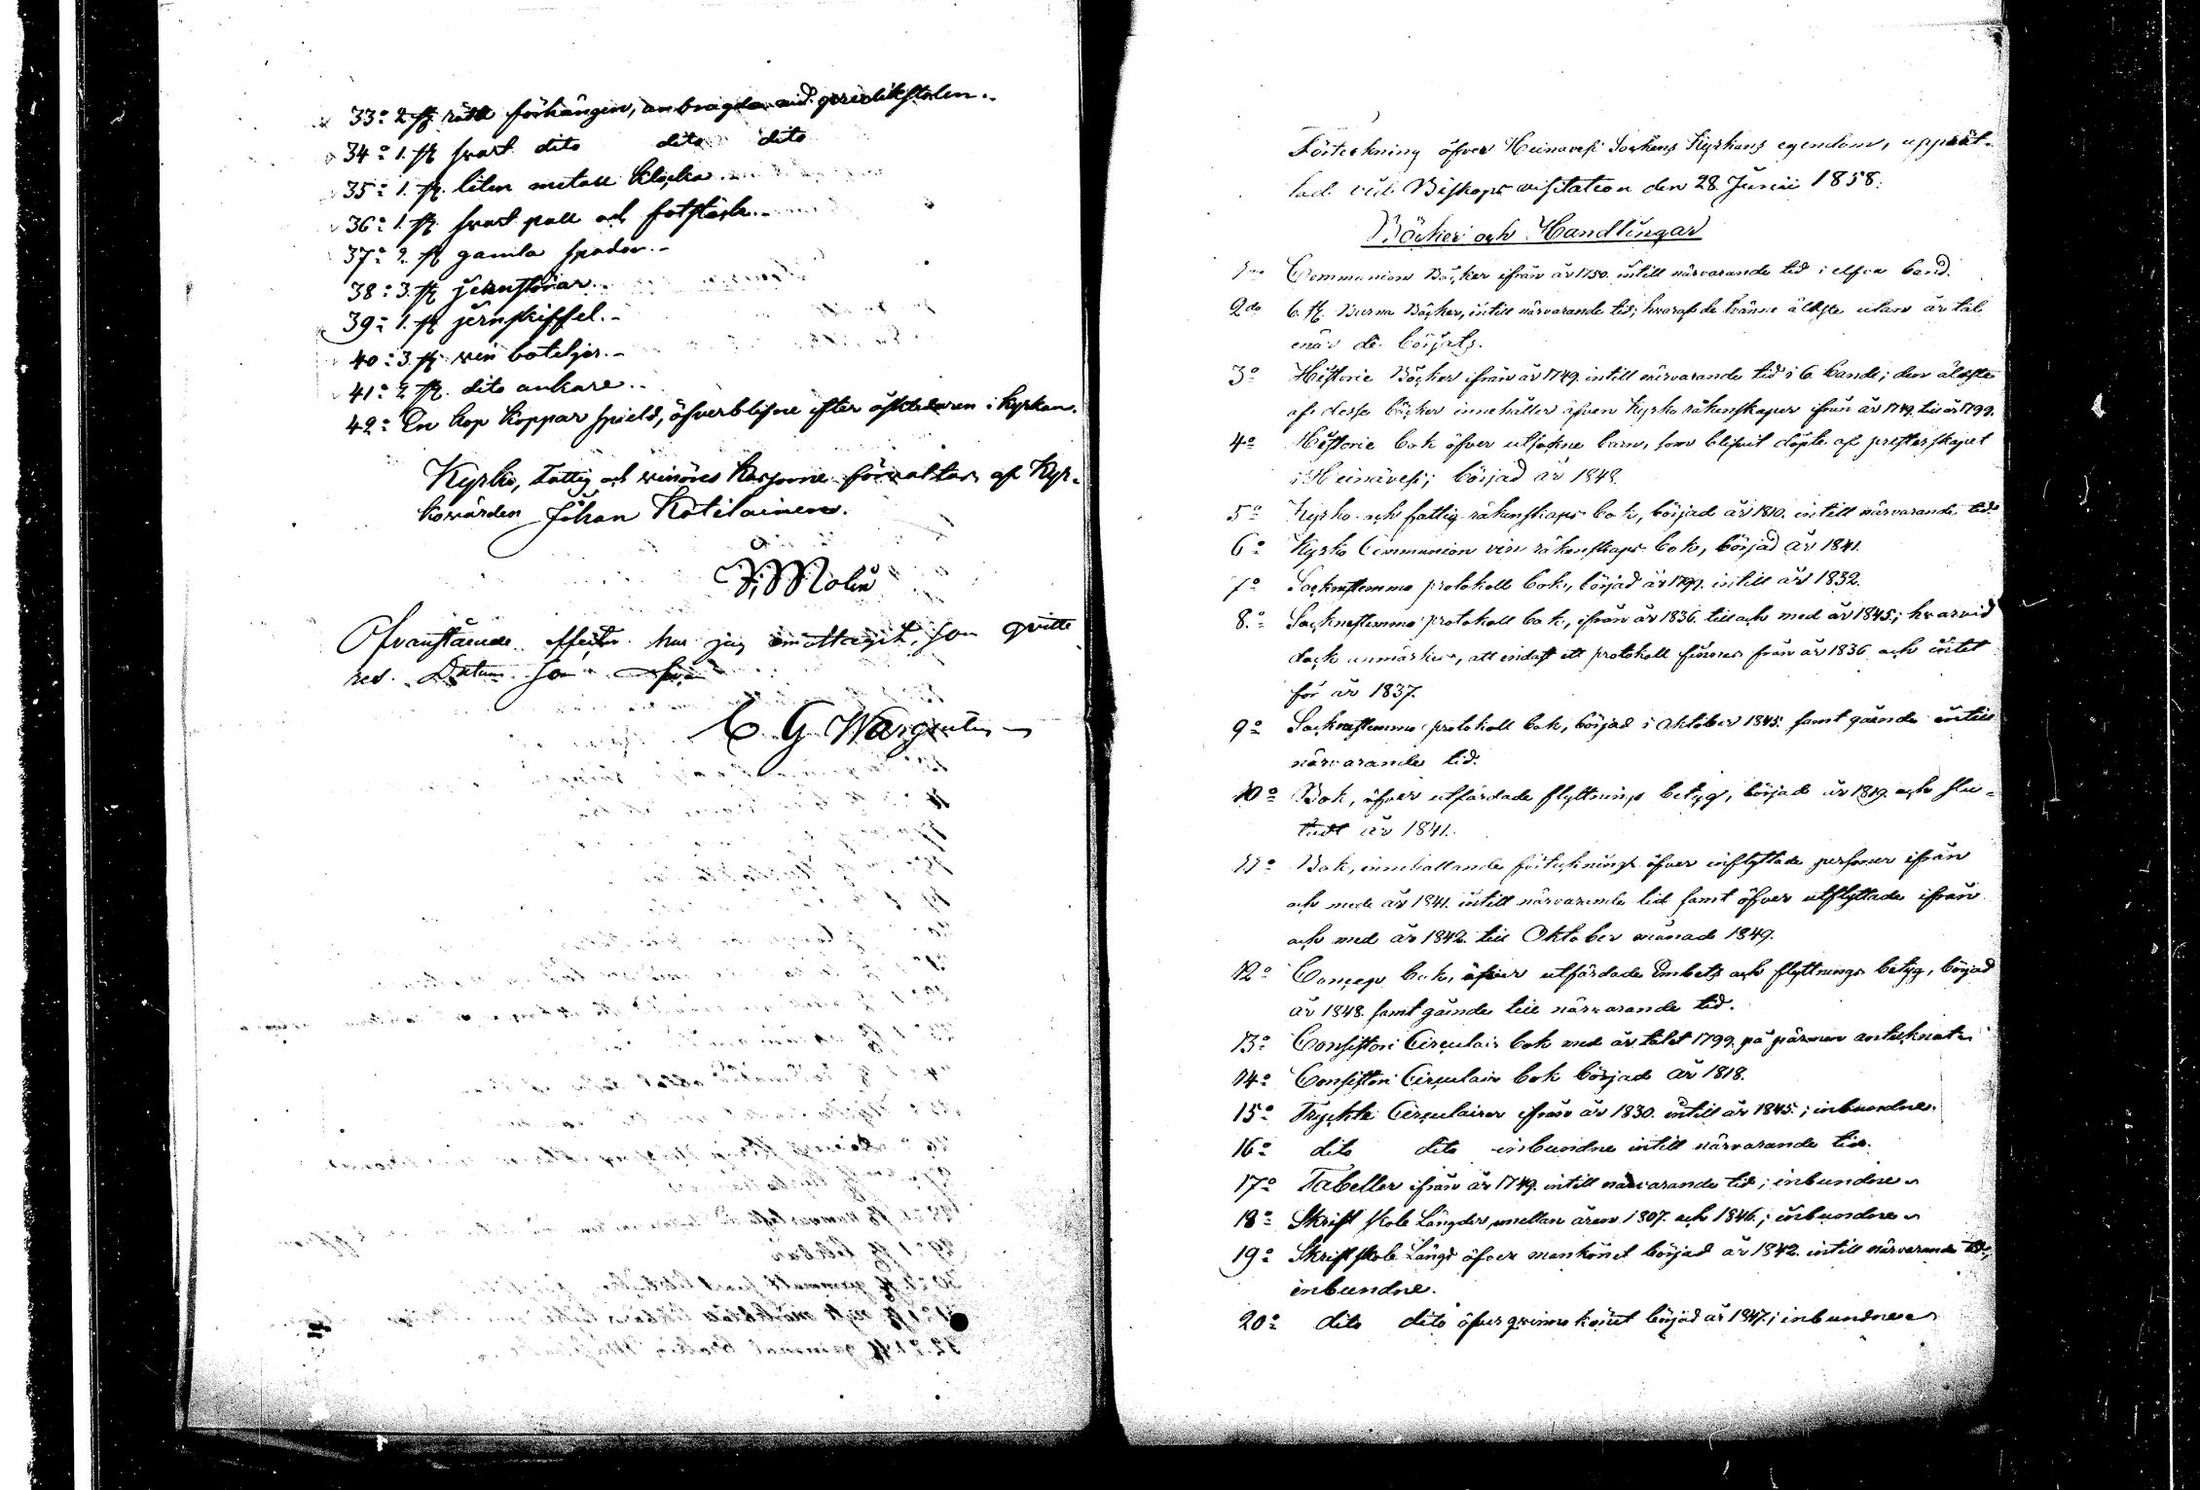 33:o 2 st rätt förhängen, anbragda vid predikstolen.
34:o 1. st svart dito dito dito
35:o 1. st. liten metall klocka.
36:o 1. st svart pall och fotstück.
37:o 2. st gamla spador.
38:o 3. st jernstörar.
39:o 1. st jernskiffel.
40:o 3 st vin boteljer.
41:o 2 st. dito ankare.
42:o En hop koppar spield, öfverblifne efter åskledaren i kyrkan.
Kyrko, Fattig och vinöres kassorne förvaltas af Kyr-
kovärden Johan Kotilainen.
Molin
Ofvanstående effecter har jag emottagit, som qvitte
res. Datum som ofvan
C G Wargentin
Förteckning öfver Heinävesi Sockens Kyrkans egendom, upprät-
tad vid Biskops visitation den 28 Junii 1858.
Böcker och Handlingar
1mo Communion Böcker ifrån år 1750. intill närvarande tid i elfva band.
2do 6. st. Barna Böcker, intill närvarande tid; hvaraf de tvänne äldste utan år tal
enär de börjats.
3o Historie Böcker ifrån år 1749. intill närvarande tid i 6. band; den äldste
af desse böcker innehåller äfven Kyrko räkenskaper ifrån år 1749. till år 1799.
4o Historie bok öfver utsockne barn, som blifvit döpte af presterskapet
i Heinävesi; börjad år 1848.
5o Kyrko och fattig räkenskaps bok, börjad år 1810. intill närvarande tid.
6o Kyrko Communion vin räkenskaps bok, börjad år 1841.
7o Socknestemmo protokoll bok, börjad år 1797. intill år 1832.
8o Socknestemmo protokoll bok, ifrån år 1836. till och med år 1845; hvarvid
dock anmärkes, att endast ett protokoll finnes från år 1836 och intet
för år 1837.
9o Socknestemmo protokoll bok, börjad i Oktober 1845. samt gående intill
närvarande tid.
10o Bok, öfver utfärdade flyttnings betyg, börjad år 1819. och slu-
tadt år 1841.
11o Bok, innehållande förteckning öfver inflyttade personer ifrån
och med år 1841. intill närvarande tid samt öfver utflyttade ifrån
och med år 1842. till Oktober månad 1849.
12o Concept bok, öfver utfärdade Embets och flyttnings betyg, börjad
år 1848 samt gående till närvarande tid.
13o Consistori Circulair bok med års talet 1799. på pärmen antecknat.
14o Consistori Circulair bok börjad år 1818.
15o Tryckta Circulairer ifrån år 1830. intill år 1845; inbundne.
16o dito dito inbundne intill närvarande tid.
17o Tabeller ifrån år 1749. intill närvarande tid; inbundne
18o Skrift skole Längder, mellan åren 1807. och 1846; inbundne
19o Skrift skole Längd öfver mankönet börjad år 1842. intill närvarande tid;
inbundne.
20o dito dito öfver qvinnokönet börjad år 1847; inbundne